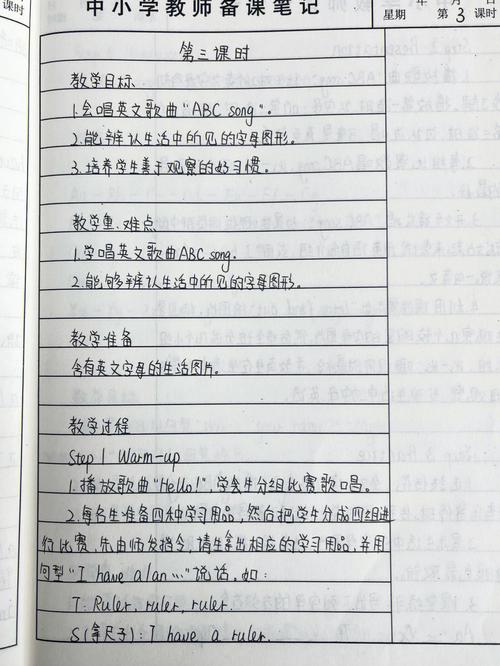 课时
中小学教师备课笔记
年 月 日
星期 第3课时
第三课时
教学目标
1.会唱英文歌曲“ABC song”。
2.能辨认生活中所见的字母图形。
3.培养学生善于观察的好习惯。
教学重、难点
1.学唱英文歌曲ABC song.
2.能够辨认生活中所见的字母图形。
教学准备
含有英文字母的生活图片。
教学过程
Step 1 Warm-up
1.播放歌曲“Hello!”学生分组比赛歌唱。
2.每名生准备四种学习用品,然后把学生分成四组进
行比赛,先由师发指令,请生拿出相应的学习用品,并用
句型“I have a/an …”说话。如:
T: Ruler, ruler, ruler.
S(拿尺子): I have a ruler.